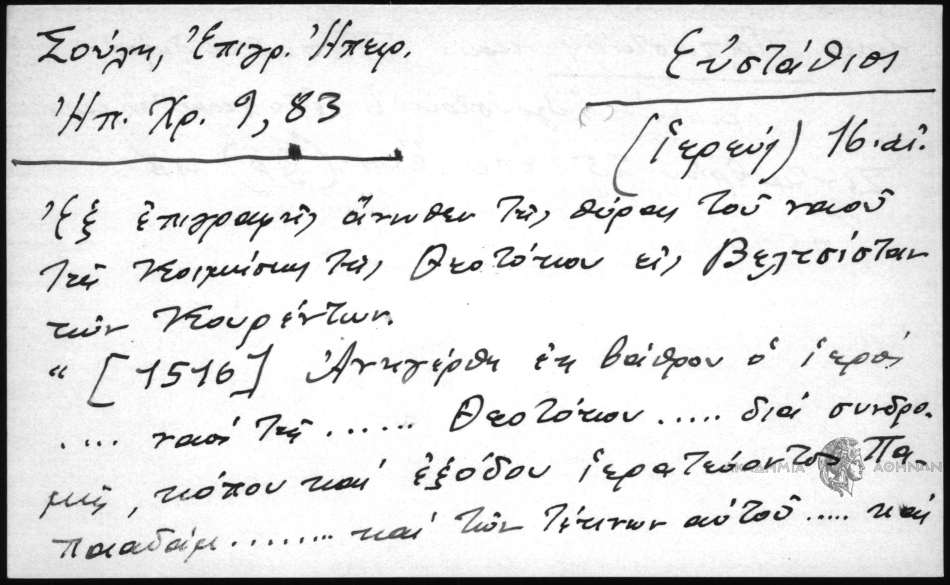 Σούλη, Ἐπιγρ. Ἠπειρ.
Ἠπ. Χρ. 9, 83
Εὐστάθιος
(ἱερεύς) 16. αἰ.
Ἐξ ἐπιγραφῆς ἄνωθεν τῆς θύρας τοῦ ναοῦ
τῆς Κοιμήσεως τῆς Θεοτόκου εἰς Βελτσίσταν
τῶν Κουρέντων.
" [1516] Ἀνηγέρθη ἐκ βάθρου ὁ ἱερός
.... ναός τῆς ...... Θεοτόκου ..... διά συνδρο-
μῆς, κόπου καί ἐξόδου ἱερατεύοντος Πα-
παδάμ ........ καί τῶν τέκνων αὐτοῦ ..... καί
ΑΚΑΔΗΜΙΑ ΑΘΗΝΩΝ